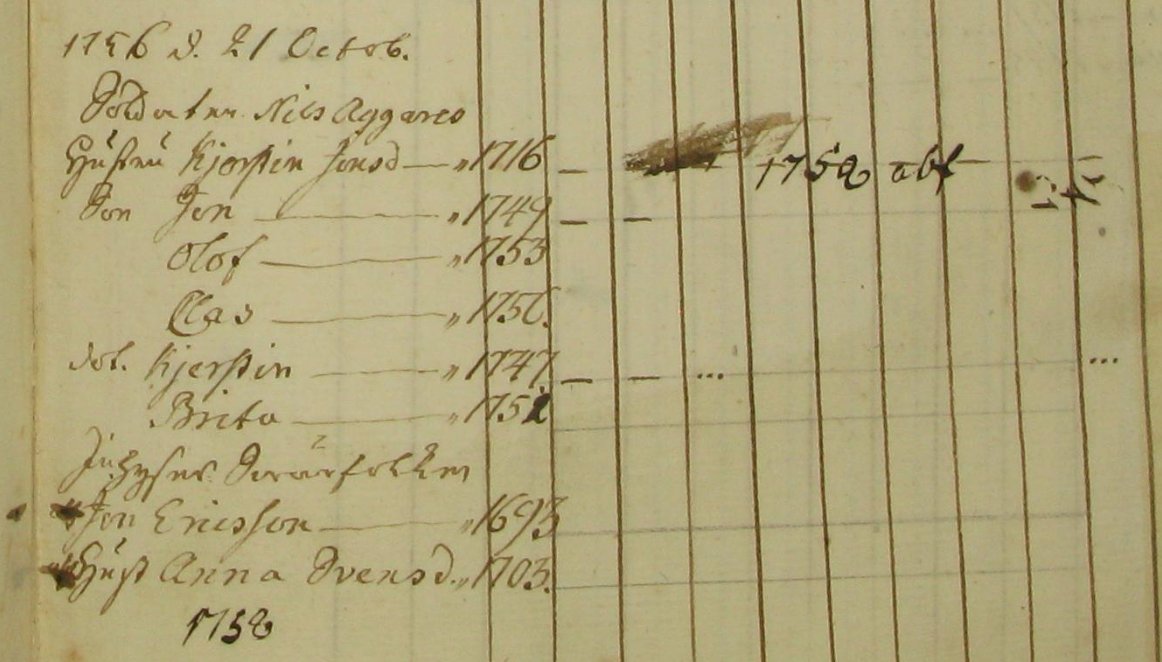 1756 d. 21 Octob.
Soldaten Nils Aggares
Hustru Kjerstin Jonsd — " 1716 — 1758 abs
Son Jon — " 1749 — —
Olof — " 1753
Clas — " 1756.
dot. Kjerstin — " 1747 — — ...  ...
Brita — " 1752
Inhyses Swärfolken
Jon Ericsson — " 1693
Hust Anna Svensd. " 1703.
1758